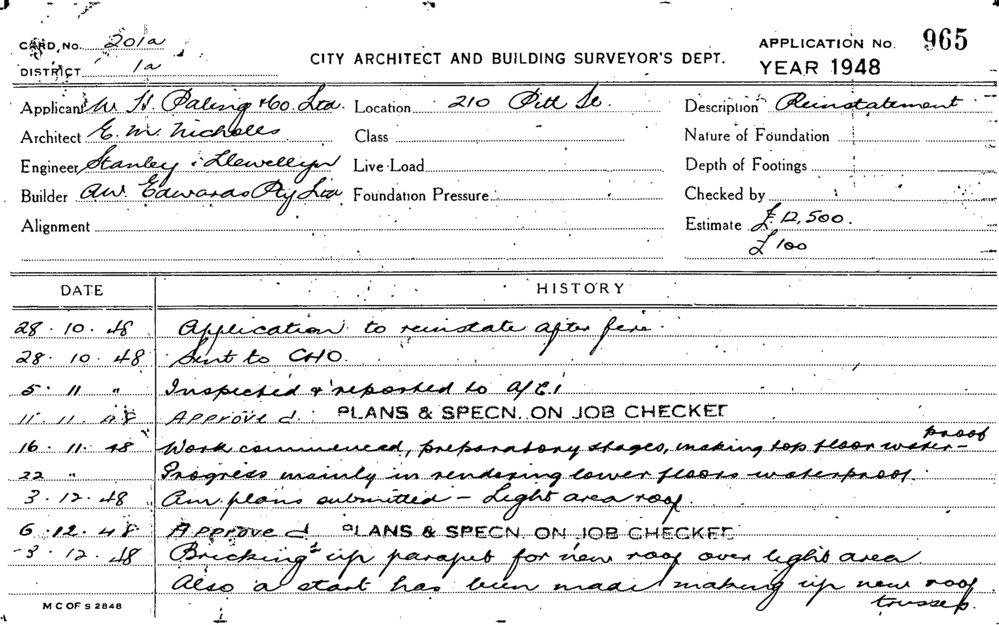 CARD No. 201a
DISTRICT 1a
CITY ARCHITECT AND BUILDING SURVEYOR'S DEPT.
APPLICATION No. 965
YEAR 1948
Applicant W. H. Paling & Co. Ltd. Location 210 Pitt St. Description Reinstatement
Architect E. M. Nicholls Class Nature of Foundation
Engineer Stanley & Llewellyn Live Load Depth of Footings
Builder AW Edwards Pty Ltd Foundation Pressure Checked by
Alignment Estimate £12,500.
£100
DATE HISTORY
28.10.48 Application to reinstate after fire.
28.10.48 Sent to CHO.
5.11 " Inspected & reported to A/C.I
11.11.48 Approved. PLANS & SPECN. ON JOB CHECKED
16.11.48 Work commenced, preparatory stages, making top floor water-proof
22 " Progress mainly in rendering lower floors waterproof.
3.12.48 Am. plans submitted - Light area roof.
6.12.48 Approved PLANS & SPECN. ON JOB CHECKED
3.12.48 Bricking up parapet for new roof over light area
Also a start has been made making up new roof
trusses.
M C OF S 2848